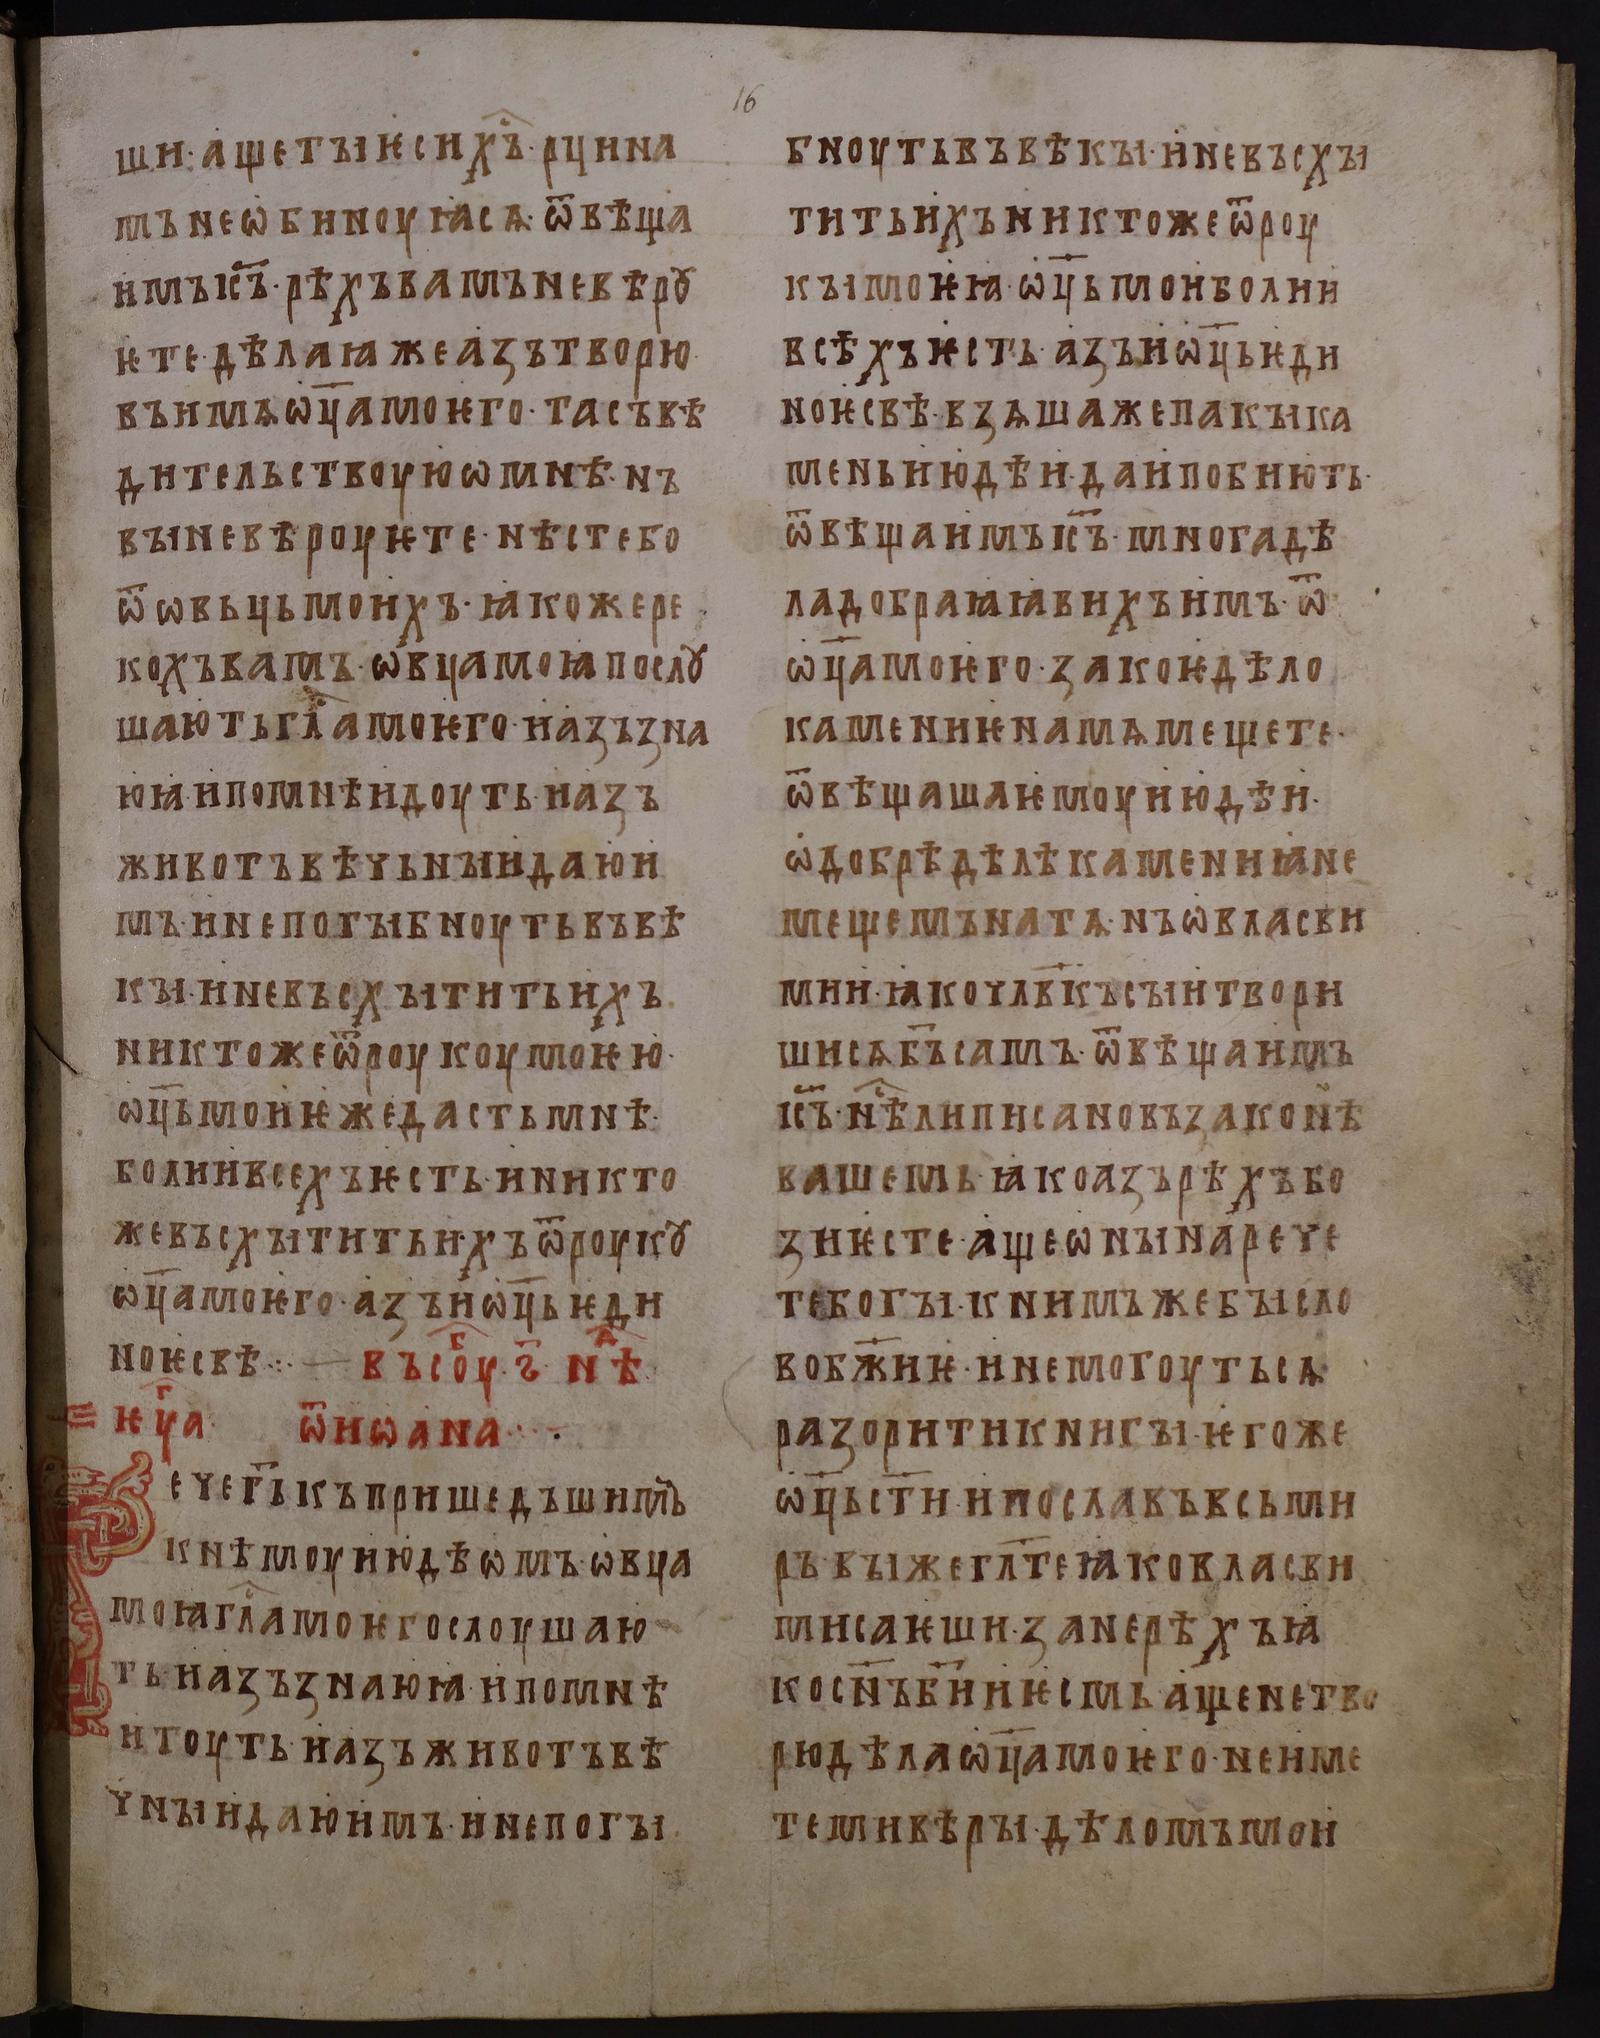 16
ши· аще ты ѥси х҃ъ· рци на
мъ не ѡбиноуꙗсѧ· ѿвѣща
имъ іс҃ъ· рѣхъ вамъ не вѣрꙋ
ѥте· дѣла ꙗже азъ творю
въ имѧ ѡц҃а моѥго· та съвѣ
дительствоую ѡ мнѣ· нъ
вы не вѣроуѥте· нѣсте бо
ѿ ѡвьць моихъ· ꙗкоже ре
кохъ вамъ· ѡвца моꙗ послꙋ
шають гл҃а моѥго· и азъ зна
ю ꙗ· и по мнѣ идоуть· и азъ
животъ вѣчьныи даю и
мъ· и не погыбноуть въ вѣ
кы· и не въсхытить ихъ
никтоже ѿ роукоу моѥю·
ѡц҃ь мои ѥже дасть мнѣ·
болии всехъ ѥсть· и никто
же въсхытить ихъ ѿ роукꙋ
ѡц҃а моѥго· азъ и ѡц҃ь ѥди
но ѥсвѣ·:· въ соуб· г҃ нѣд
ѥѵ҃га ѿ иѡана·:·
Рече г҃ь къ пришедъшимъ
к нѣмоу июдѣѡмъ· ѡвца
моꙗ гл҃а моѥго слоушаю
ть· и азъ знаю ꙗ· и по мнѣ
итоуть· и азъ животъ вѣ
чныи даю имъ· и не погы
бноуть въ вѣкы· и не въсхы
тить ихъ никтоже ѿ роу
кы моѥꙗ· ѡц҃ь мои болии
всѣхъ ѥсть· азъ и ѡц҃ь ѥди
но ѥсвѣ· взѧша же пакы ка
мень июдѣи· да и побиють·
ѿвѣща имъ іс҃ъ· многа дѣ
ла добраꙗ ꙗвихъ имъ· ѿ
ѡц҃а моѥго· за коѥ дѣло
камениѥ на мѧ мещете·
ѿвѣщаша ѥмоу июдѣи·
ѡ добрѣ дѣлѣ камениꙗ не
мещемъ на тѧ· нъ ѡ власви
мии· ꙗко чл҃вкъ сыи твори
ши сѧ б҃ъ самъ· ѿвѣща имъ
іс҃ъ· нѣ҃ ли писано въ законѣ
вашемь· ꙗко азъ рѣхъ бо
зи ѥсте· аще ѡны нарече
те богы· к нимъ же бы сло
во бж҃иѥ· и не могоуть сѧ
разорити книгы· ѥгоже
ѡц҃ь ст҃и и посла въ всь ми
ръ· вы же гл҃те ꙗко власви
мисаѥши· зане рѣхъ ꙗ
ко сн҃ъ б҃ии ѥсмь· аще не тво
рю дѣла ѡц҃а моѥго· не име
те ми вѣры· дѣломъ мои